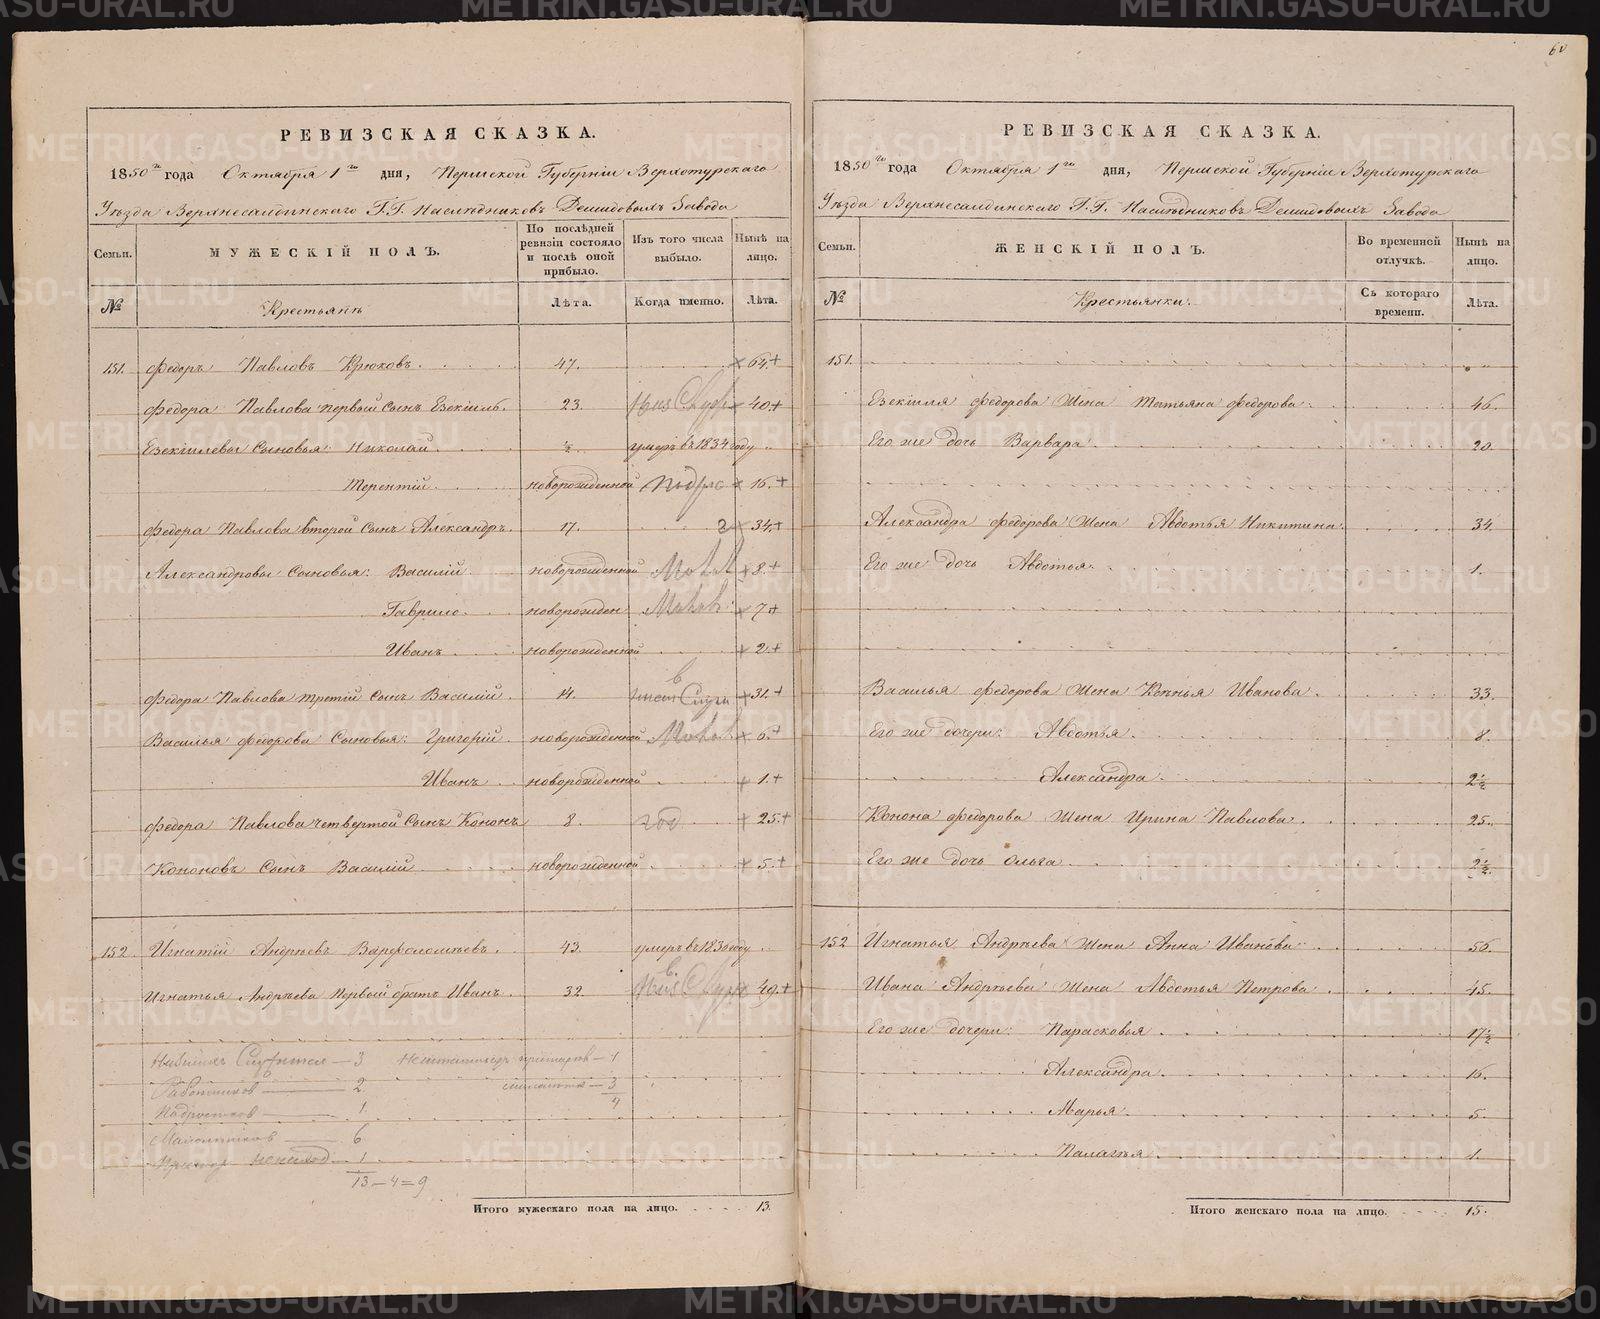 60
РЕВИЗСКАЯ СКАЗКА.
1850го года Октября 1го дня, Пермской Губерніи Верхотурскаго
Уѣзда Верхнесалдинскаго Г.Г. Наслѣдниковъ Демидовыхъ Завода
Семьи. МУЖЕСКІЙ ПОЛЪ. По послѣдней ревизіи состояло и послѣ оной прибыло. Изъ того числа выбыло. Нынѣ на лицо.
№ Крестьянъ Лѣта. Когда именно. Лѣта.
151. Федоръ Павловъ Крюковъ. 47. 64.
Федора Павлова первый сынъ Езекіиль. 23. 40.
Езекіилевы сыновья: Николай ½ умеръ въ 1834 году
Терентій новорожденной 16.
Федора Павлова второй сынъ Александръ. 17. 34.
Александровы сыновья: Василій новорожденной 8.
Гаврило новорожден 7
Иванъ новорожденной 2
Федора Павлова третій сынъ Василій. 14. 31.
Василья Федорова сыновья: Григорій новорожденной 6.
Иванъ новорожденной 1.
Федора Павлова четвертой сынъ Кононъ 8. 25.
Кононовъ сынъ Василій новорожденной 5.
152. Игнатій Андрѣевъ Варфоломѣевъ. 43. умеръ въ 1830 году
Игнатья Андрѣева первый братъ Иванъ. 32. 49.
3 1
Работниковъ — 2 3
Подростковъ — 1 4
Малолѣтковъ — 6
1
13 — 4 = 9
Итого мужескаго пола на лицо. 13.
РЕВИЗСКАЯ СКАЗКА.
1850го года Октября 1го дня, Пермской Губерніи Верхотурскаго
Уѣзда Верхнесалдинскаго Г.Г. Наслѣдниковъ Демидовыхъ Завода
Семьи. ЖЕНСКІЙ ПОЛЪ. Во временной отлучкѣ. Нынѣ на лицо.
№ Крестьянки. Съ котораго времени. Лѣта.
151.
Езекіиля Федорова жена Татьяна Федорова 46.
Его же дочь Варвара 20.
Александра Федорова жена Авдотья Никитина. 34.
Его же дочь Авдотья. 1.
Василья Федорова жена Ксѣнья Иванова. 33.
Его же дочери: Авдотья. 8.
Александра 2½
Конона Федорова жена Ирина Павлова. 25.
Его же дочь Ольга 2½.
152 Игнатья Андрѣева жена Анна Иванова 56.
Ивана Андрѣева жена Авдотья Петрова 45.
Его же дочери: Парасковья 17½
Александра. 16.
Марья 5.
Палагѣя 1.
Итого женскаго пола на лицо. 15.
METRIKI.GASO-URAL.RU